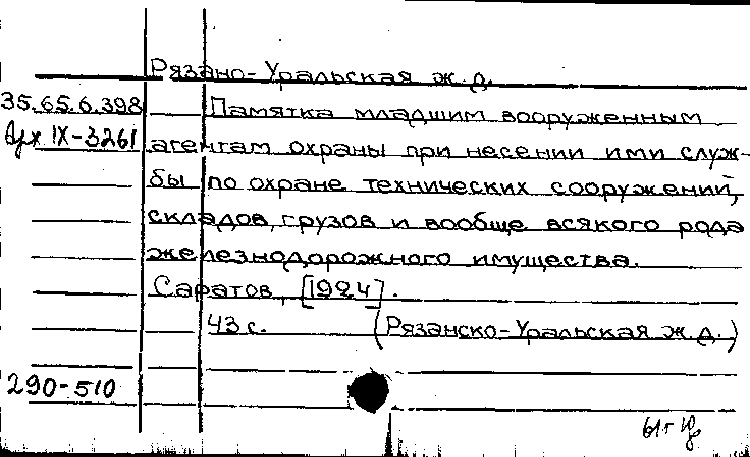 Рязано-Уральская ж.д.
35.65.6.398 Памятка младшим вооруженным
Арх IX-3261 агентам охраны при несении ими служ-
бы по охране технических сооружений,
складов, грузов и вообще всякого рода
железнодорожного имущества.
Саратов, [1924].
43 с. (Рязанско-Уральская ж.д.)
290-510
61г